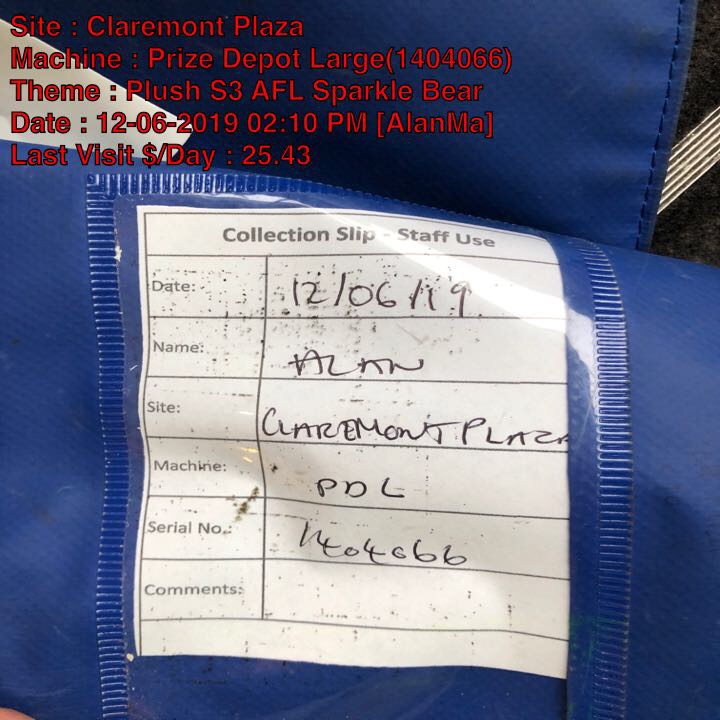 Site : Claremont Plaza
Machine : Prize Depot Large(1404066)
Theme : Plush S3 AFL Sparkle Bear
Date : 12-06-2019 02:10 PM [AlanMa]
Last Visit $/Day : 25.43
Collection Slip - Staff Use
Date: 12/06/19
Name: ALAN
Site: CLAREMONT PLAZA
Machine: PDL
Serial No.: 1404066
Comments: